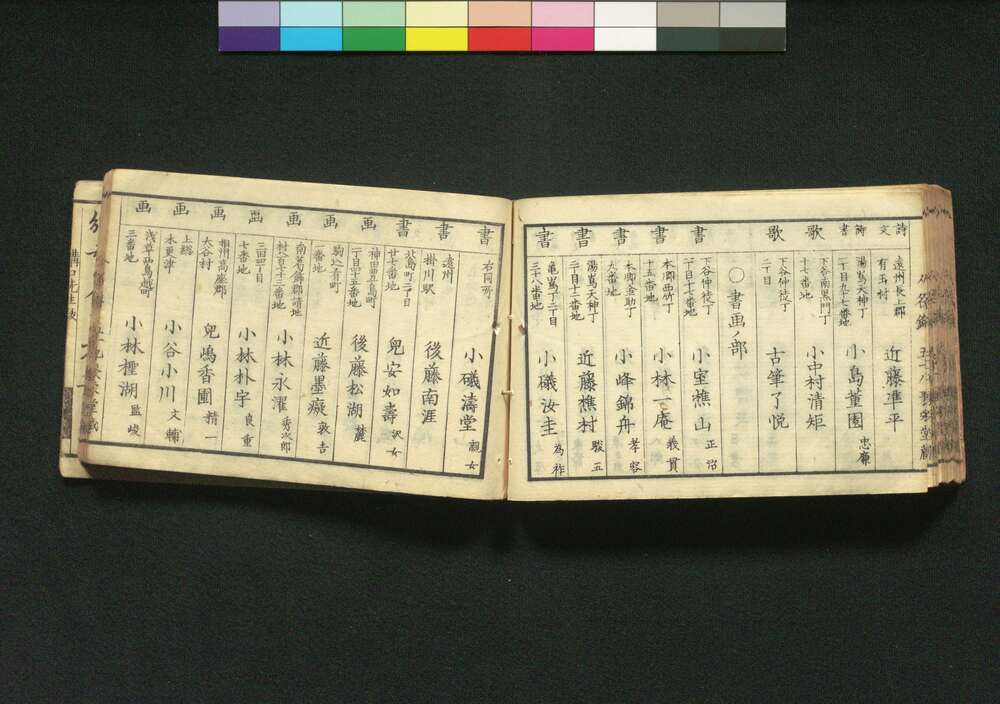 詩文
遠州長上郡
有玉村
近藤準平
詩書
湯嶌天神丁
二丁目九十七番地
小島董園 忠廉
歌
下谷南黒門丁
十七番地
小中村清矩
歌
下谷仲徒丁
二丁目
古筆了悦
〇書画ノ部
書
下谷仲徒丁
二丁目十七番地
小室樵山 正沼
書
本郷西竹丁
十五番地
小林一庵 義貫
書
本郷金助丁
九番地
小峰錦舟 孝容
書
湯嶌天神丁
二丁目十二番地
近藤樵村 駿五
書
亀嶌丁二丁目
三十八番地
小礒汝圭 為祚
書
右同所
小礒濤堂 親女
書
遠州
掛川駅
後藤南涯
書
廿七番地
兒安如壽 沢女
画
神田五島町
二丁目四十五番地
後藤松湖 麓
画
駒込追町
一番地
近藤墨癡
画
村百七十三番地
小林永濯 秀次郎
画
三田四丁目
七番地
小林朴宇 良重
画
相州高座郡
大谷村
兒嶋香圃 精一
画
上総
木更津
小谷小川 文輔
画
浅草西鳥越町
三番地
小林狸湖 監峻